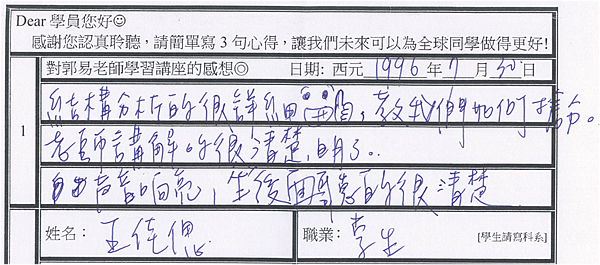 Dear 學員您好☺
感謝您認真聆聽，請簡單寫 3 句心得，讓我們未來可以為全球同學做得更好!
對郭易老師學習講座的感想◎ 日期: 西元 1996 年 7 月 30 日
1 結構分析的很詳細，教我們如何搶分。
老師講解的很清楚,明了..
声音响亮，坐後面聽的很清楚
姓名： 王佳偲 職業： 学生 [學生請寫科系]